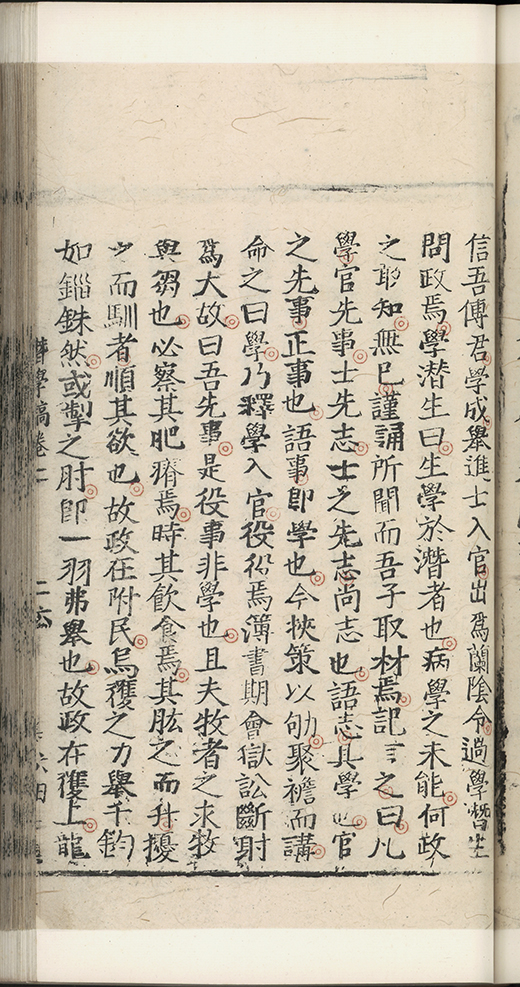 信吾傅君學成舉進士入官出爲蘭陰令過學潛生
問政焉學潜生曰生學於潛者也病學之未能何政
之敢知無已謹誦所聞而吾子取材焉記言之曰凡
學官先事士先志士之先志尚志也語志其學也官
之先事正事也語事即學也今挾策以劬聚襜而講
命之曰學乃釋學入官役役焉簿書期會獄訟斷
爲大故曰吾先事是役事非學也且夫牧者之求牧
與芻也必察其肥瘠焉時其飮食焉其肱之而升擾
之而馴者順其欲也故政在附民烏獲之力舉千鈞
如錙銖然或掣之肘即一羽弗舉也故政在獲上龍
潛學稿卷二